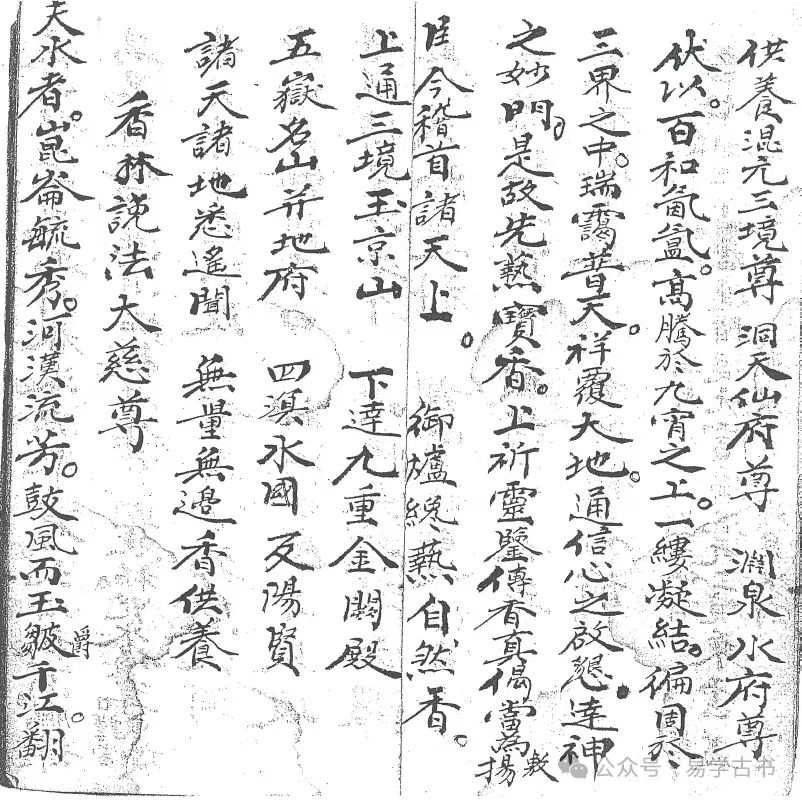 供養混元三境尊 洞天仙府尊 淵泉水府尊
伏以。百和氤氳。高騰於九宵之上。一縷凝結。徧周於
三界之中。瑞靄普天。祥覆大地。通信心之啟懇。達神
之妙門。是故先爇寶香。上祈靈鑒傳香真偈當為敷揚
臣今稽首諸天上。 御爐纔爇自然香。
上通三境玉京山 下達九重金闕殿
五嶽名山并地府 四溟水國及陽賢
諸天諸地悉遙聞 無量無邊香供養
香林說法大慈尊
夫水者。崑崙毓秀。河漢流芳。鼓風而玉皺千江。翻
爵
公众号·易学古书